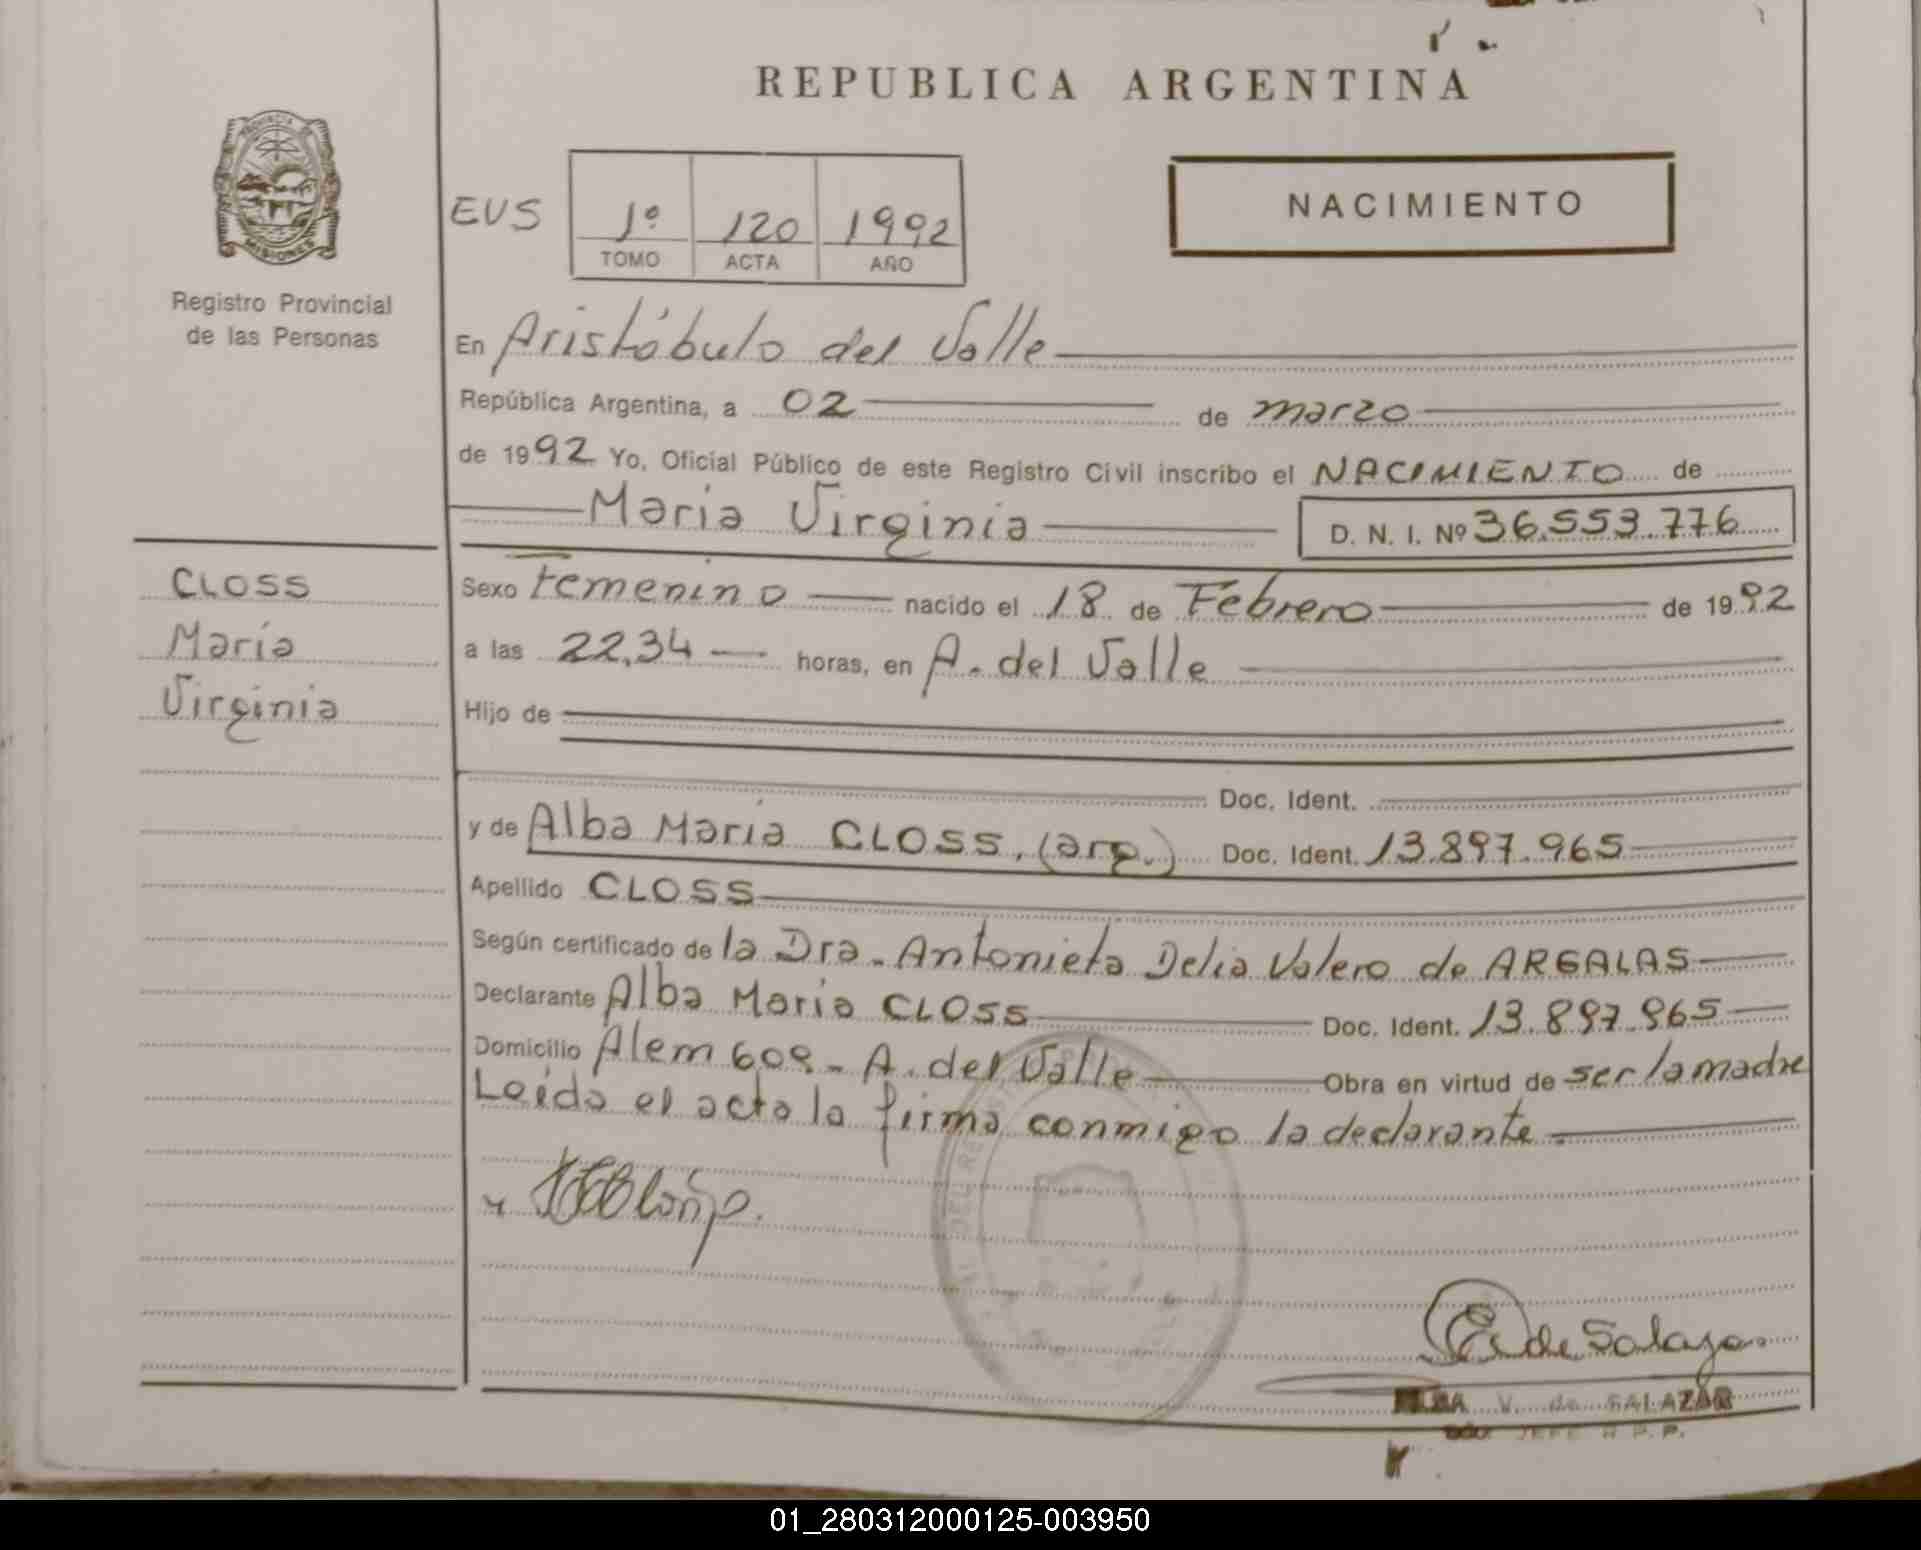 REPUBLICA ARGENTINA
PROVINCIA DE
MISIONES
Registro Provincial
de las Personas
EUS
1º 120 1992
TOMO ACTA AÑO
NACIMIENTO
En Aristóbulo del Valle
República Argentina, a 02 de marzo
de 1992 Yo, Oficial Público de este Registro Civil inscribo el NACIMIENTO de
María Virginia D. N. I. Nº 36.553.776
CLOSS
María
Virginia
Sexo Femenino nacido el 18 de Febrero de 1992
a las 22,34 horas, en A. del Valle
Hijo de
Doc. Ident.
y de Alba María CLOSS, (arg.) Doc. Ident. 13.897.965
Apellido CLOSS
Según certificado de la Dra. Antonieta Delia Valero de ARGALAS
Declarante Alba Maria CLOSS Doc. Ident. 13.897.965
Domicilio Alem 608 - A. del Valle Obra en virtud de ser la madre
Leída el acta la firma conmigo la declarante.
E. de Salazar
V. de SALAZAR
JEFE R.P.P.
01_280312000125-003950